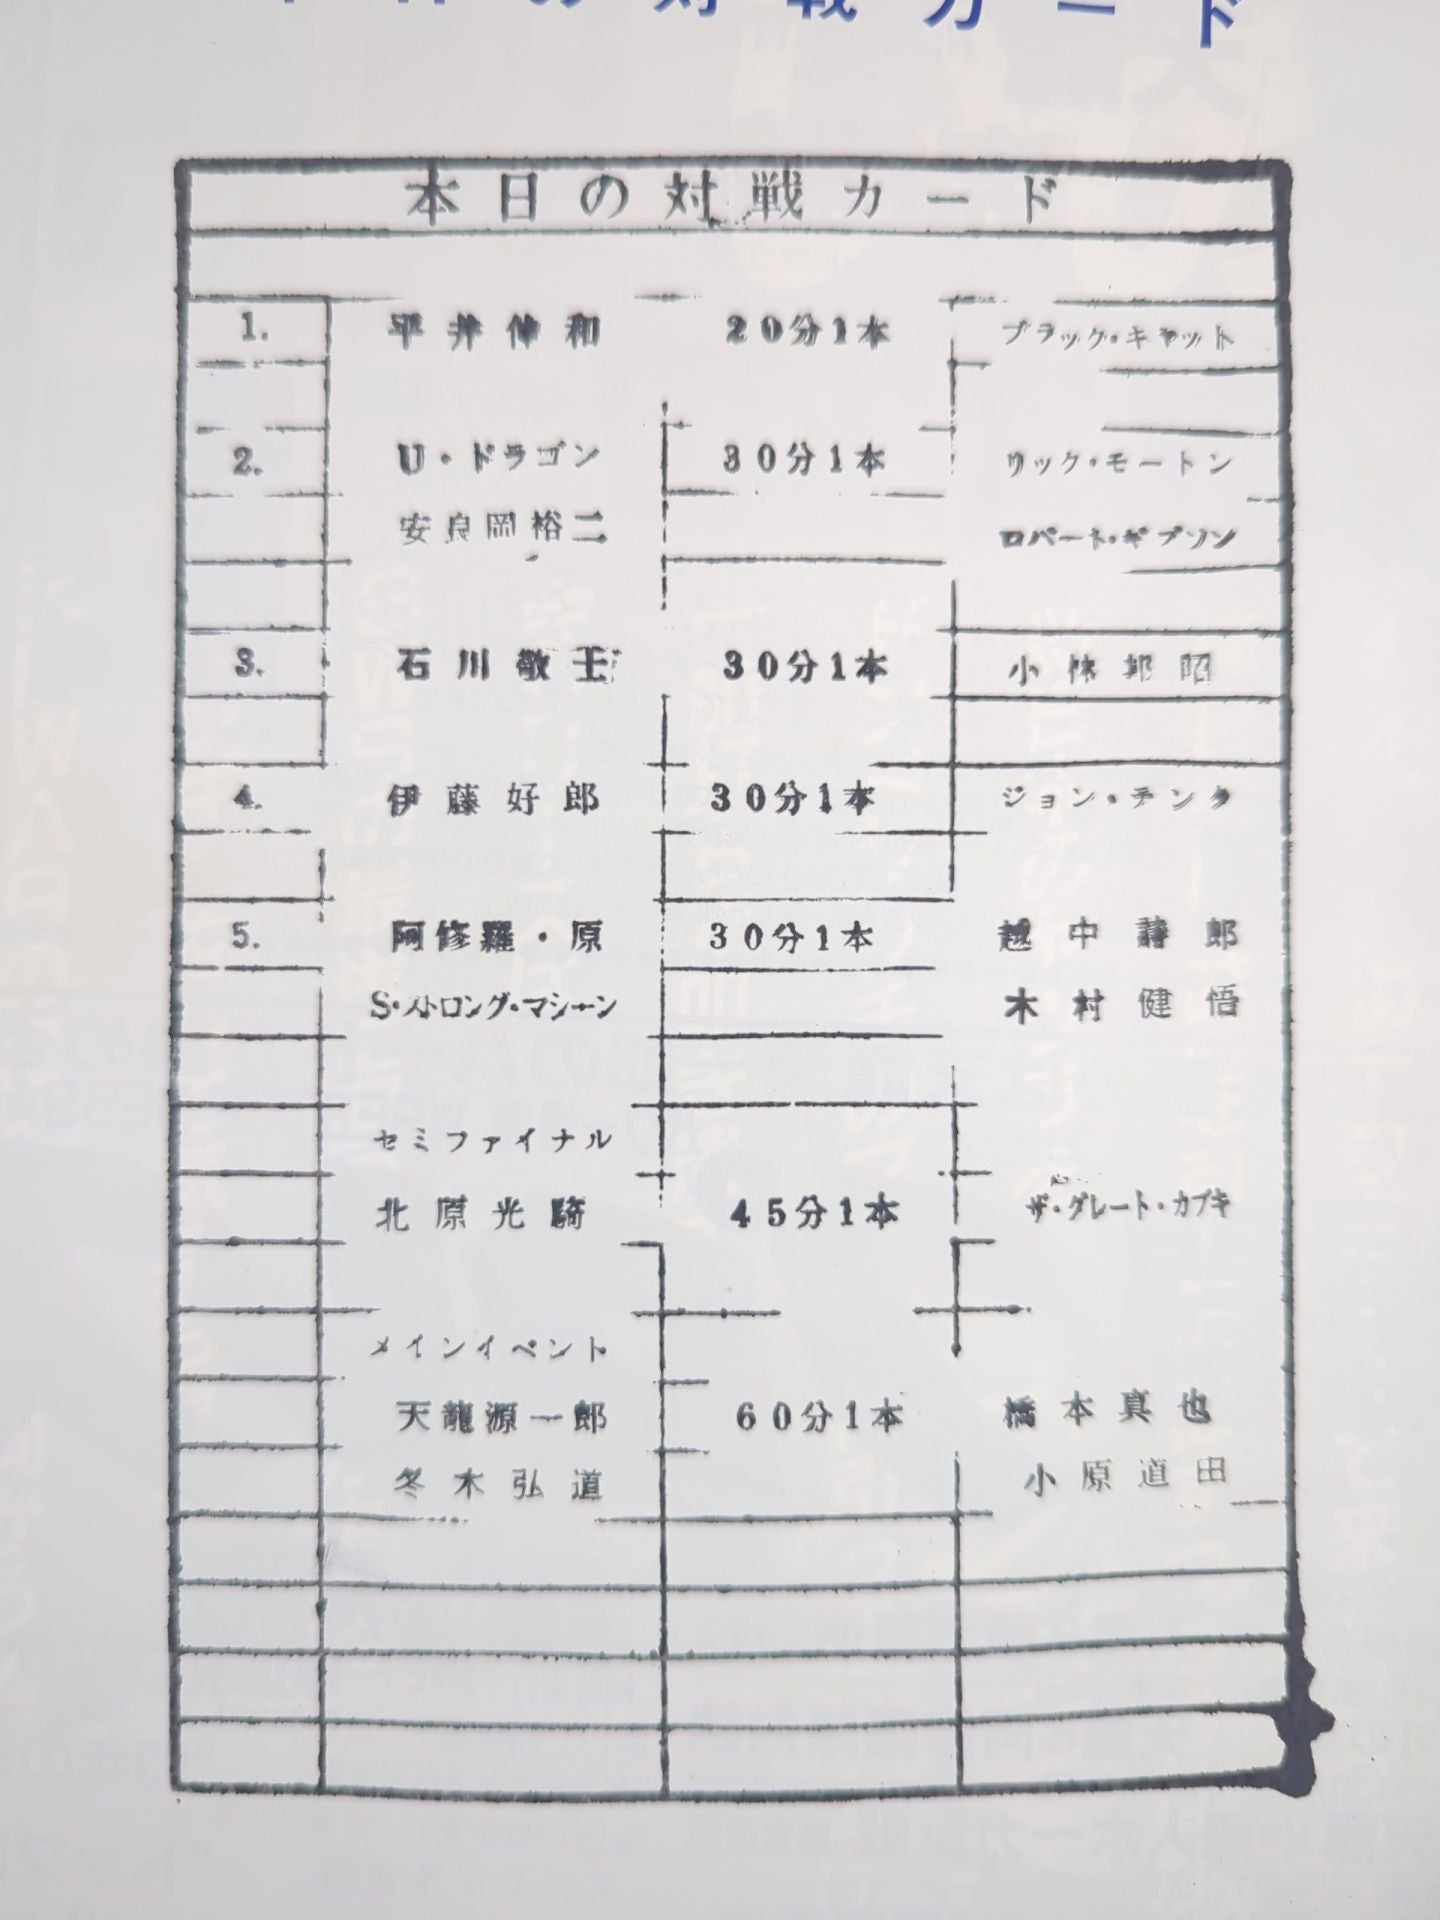 本日の対戦カード
本日の対戦カード
1. 平井伸和 20分1本 ブラック・キャット
2. U・ドラゴン 30分1本 リック・モートン
安良岡裕二 ロバート・ギブソン
3. 石川敬士 30分1本 小林邦昭
4. 伊藤好郎 30分1本 ジョン・テンタ
5. 阿修羅・原 30分1本 越中詩郎
S・ストロング・マシーン 木村健悟
セミファイナル
北原光騎 45分1本 ザ・グレート・カブキ
メインイベント
天龍源一郎 60分1本 橋本真也
冬木弘道 小原道由